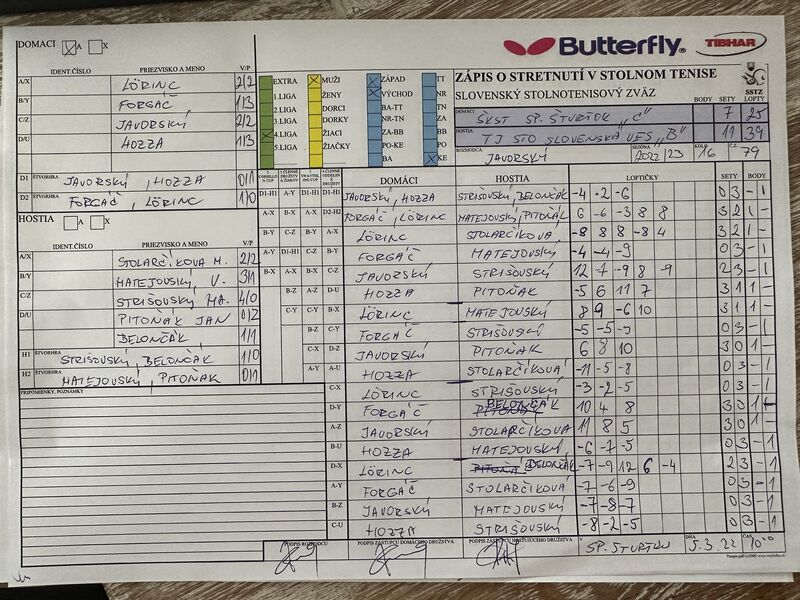 DOMACI A X
Butterfly TIBHAR
IDENT.ČÍSLO PRIEZVISKO A MENO V/P
A/X LÖRINC 2/2
B/Y FORGÁČ 1/3
C/Z JAVORSKÝ 2/2
D/U HOZZA 1/3
EXTRA MUŽI ZÁPAD TT
1.LIGA ŽENY VÝCHOD NR
2.LIGA DORCI BA-TT TN
3.LIGA DORKY NR-TN ZA
4.LIGA ŽIACI ZA-BB BB
5.LIGA ŽIAČKY PO-KE PO
BA KE
ZÁPIS O STRETNUTÍ V STOLNOM TENISE
SLOVENSKÝ STOLNOTENISOVÝ ZVÄZ
BODY SETY LOPTY
SSTZ
DOMÁCI ŠKST SP. ŠTVRTOK "C" 7 25
HOSTIA TJ STO SLOVENSKÁ VES "B" 11 39
ROZHODCA JAVORSKÝ SEZÓNA 2022/23 KOLO 16 Č.Z 79
D1 ŠTVORHRA JAVORSKÝ, HOZZA 0/1
D2 ŠTVORHRA FORGÁČ, LÖRINC 1/0
HOSTIA A X
IDENT.ČÍSLO PRIEZVISKO A MENO V/P
A/X STOLARČÍKOVA M. 2/2
B/Y MATEJOVSKÝ, V. 3/1
C/Z STRIŠOVSKÝ MA. 4/0
D/U PITOŇÁK JAN 0/2
BELONČÁK 1/1
H1 ŠTVORHRA STRIŠOVSKÝ, BELONČÁK 1/0
H2 ŠTVORHRA MATEJOVSKÝ, PITOŇAK 0/1
PRIPOMIENKY, POZNÁMKY
DOMÁCI HOSTIA LOPTIČKY SETY BODY
D1-H1 A-Y D1-H1 D1-H1 JAVORSKÝ, HOZZA STRIŠOVSKÝ, BELONČÁK -4 -2 -6 0 3 - 1
A-X B-X A-X D2-H2 FORGÁČ, LÖRINC MATEJOVSKÝ, PITOŇÁK 6 -6 -3 8 8 3 2 1 -
B-Y C-Z B-Y A-X LÖRINC STOLARČÍKOVA -8 8 8 -8 4 3 2 1 -
A-Y D1-H1 C-Z B-Y FORGÁČ MATEJOVSKÝ -4 -4 -9 0 3 - 1
B-X A-X B-X C-Z JAVORSKÝ STRIŠOVSKÝ 12 7 -9 8 -9 2 3 - 1
B-Z A-Z D-U HOZZA PITOŇAK -5 6 11 7 3 1 1 -
C-Y C-Y B-X LÖRINC MATEJOVSKÝ 8 9 -6 10 3 1 1 -
B-Z C-Y FORGÁČ STRIŠOVSKÝ -5 -5 -9 0 3 - 1
C-X D-Z JAVORSKÝ PITOŇAK 6 8 10 3 0 1 -
A-Y A-U HOZZA STOLARČÍKOVÁ -11 -5 -8 0 3 - 1
C-X LÖRINC STRIŠOVSKÝ -3 -2 -5 0 3 - 1
D-Y FORGÁČ BELONČÁK 10 4 8 3 0 1 -
A-Z JAVORSKÝ STOLARČÍKOVA 11 8 5 3 0 1 -
B-U HOZZA MATEJOVSKÝ -6 -7 -5 0 3 - 1
D-X LÖRINC PITOŇÁ BELONČÁK -7 -9 12 6 -4 2 3 - 1
A-Y FORGÁČ STOLARČÍKOVÁ -7 -6 -9 0 3 - 1
B-Z JAVORSKÝ MATEJOVSKÝ -7 -8 -7 0 3 - 1
C-U HOZZA STRIŠOVSKÝ -8 -2 -5 0 3 - 1
PODPIS ROZHODCU PODPIS ZÁSTUPCU DOMÁCEHO DRUŽSTVA PODPIS ZÁSTUPCU HOSŤUJÚCEHO DRUŽSTVA V SP. ŠTVRTKU DŇA 5.3.22 ČAS 10:00